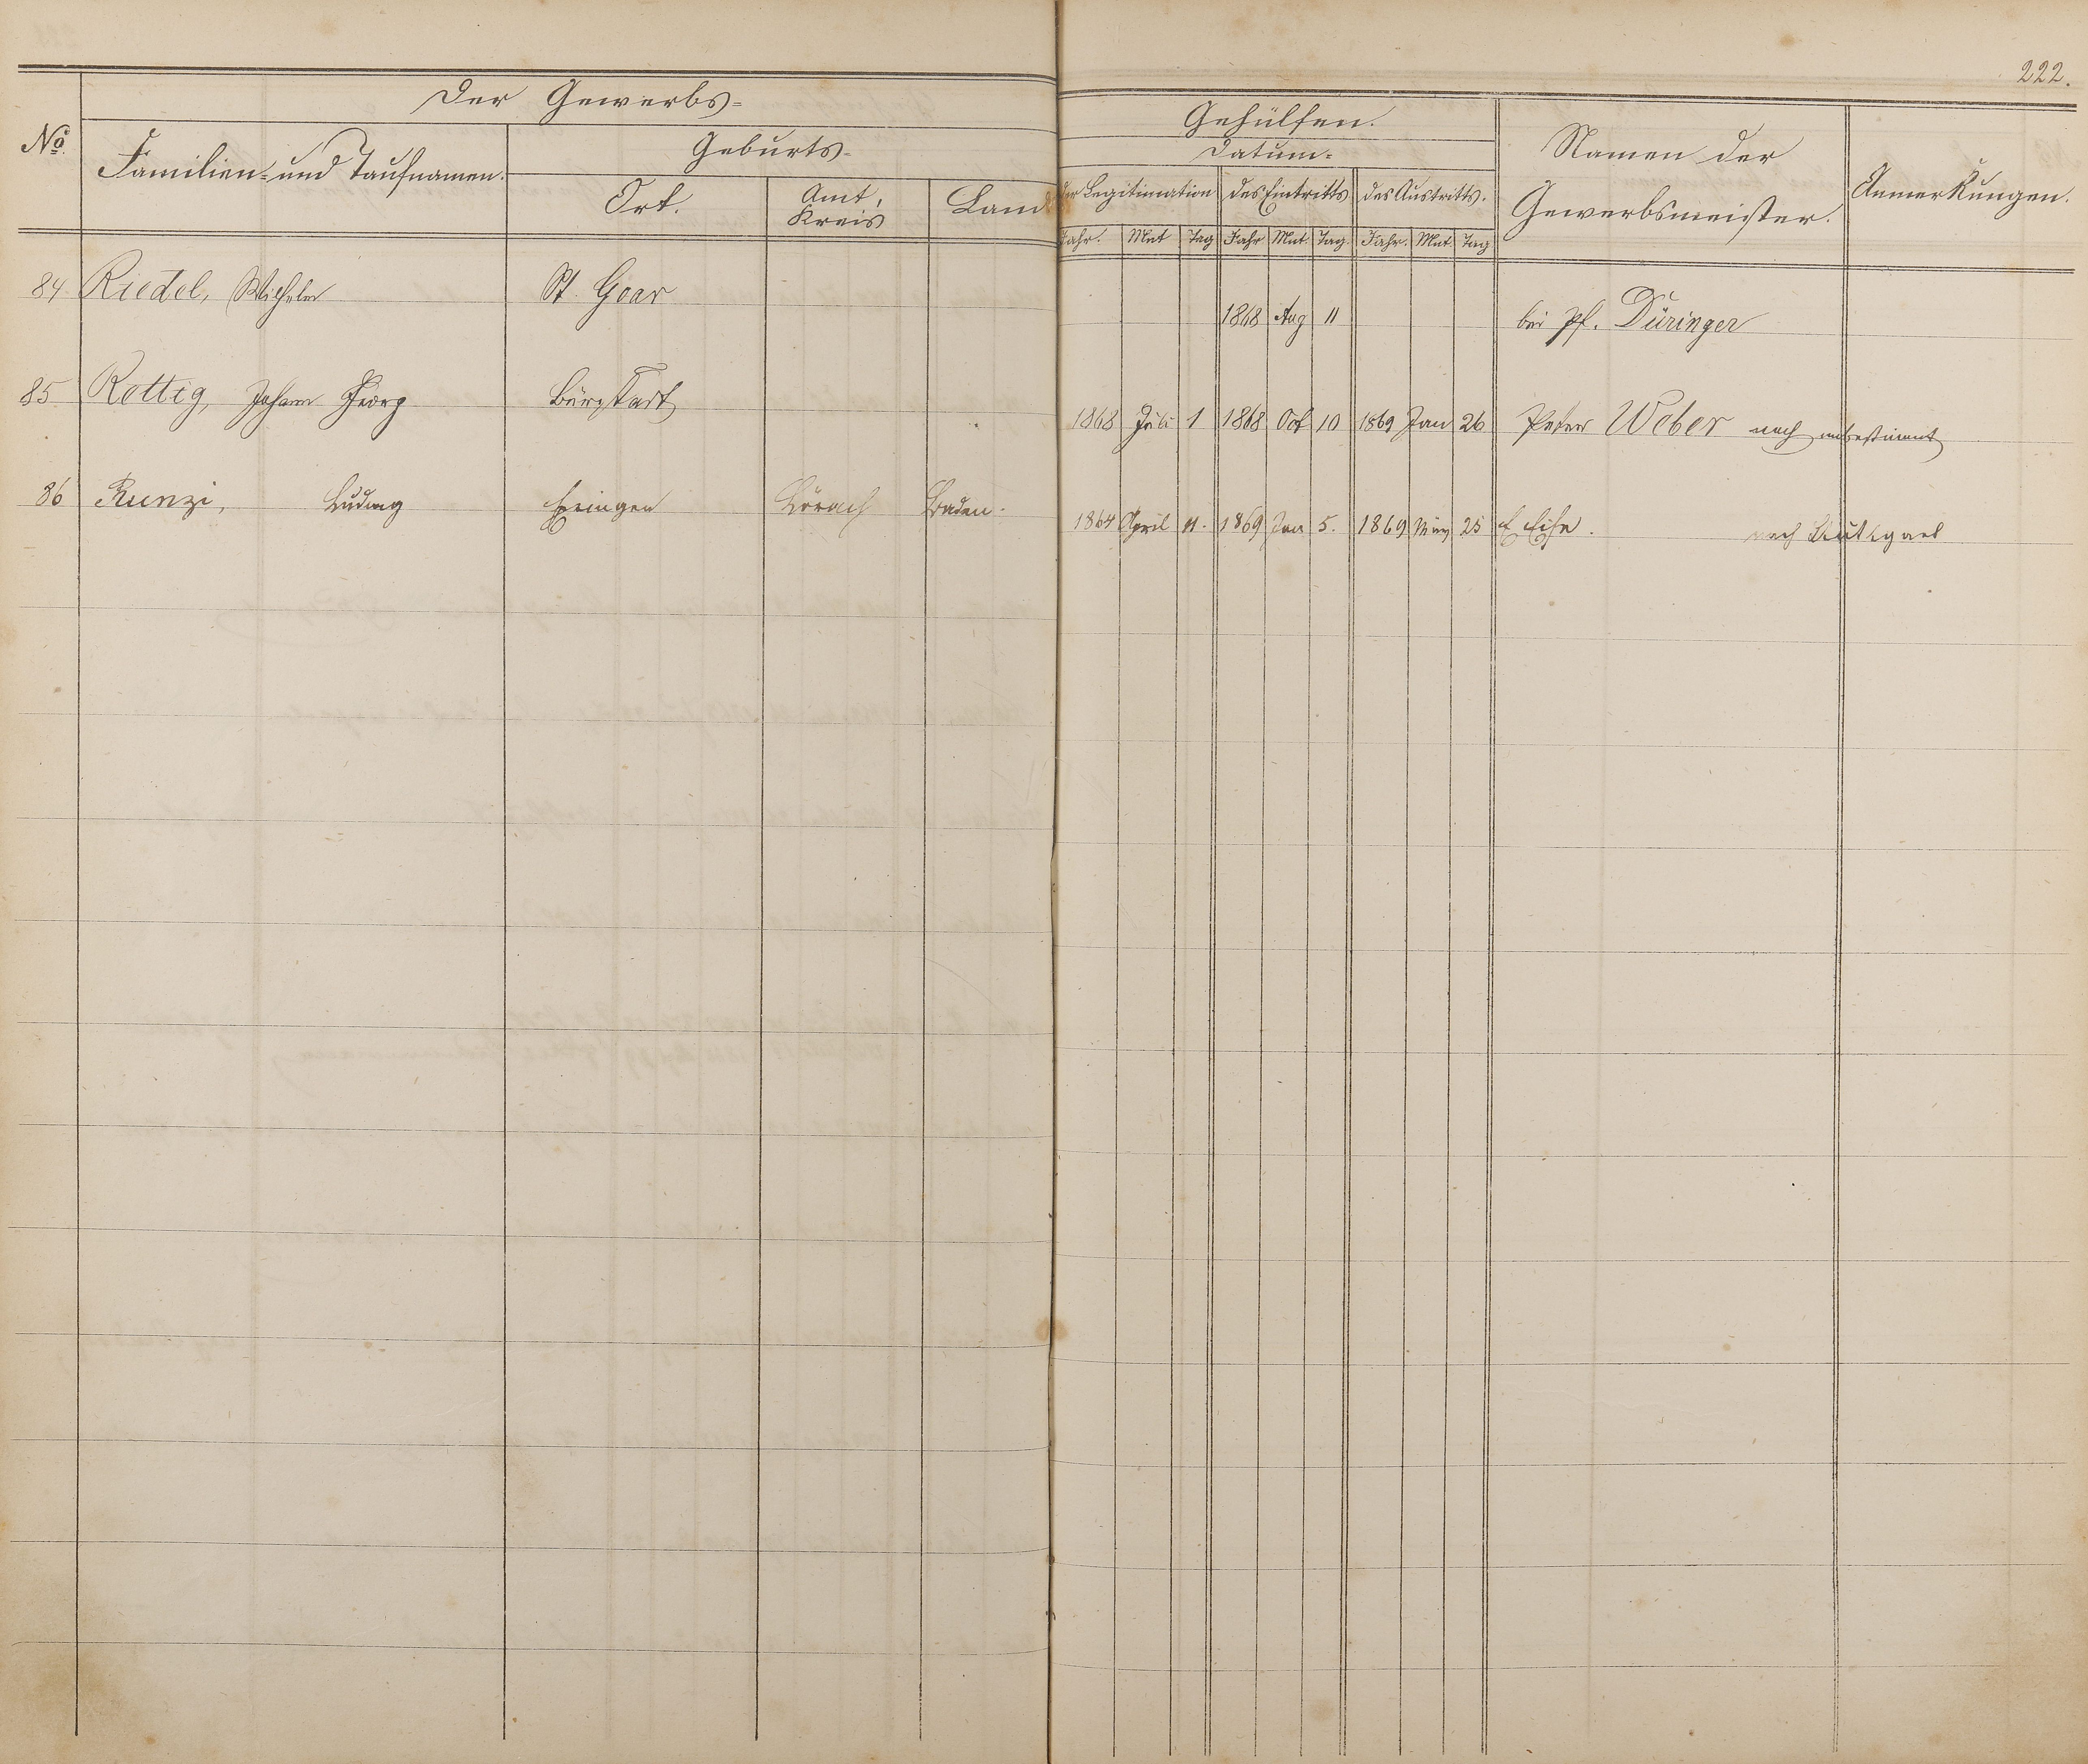 222.
Der Gewerbs-
Gehülfen.
No.
Familien- und Taufnamen.
Geburts-
Ort.
Amt, Kreis
Land
Datum-
der Legitimation
des Eintritts
des Austritts.
Jahr. Mnt Tag Jahr Mnt. Tag. Jahr. Mnt. Tag
Namen der
Gewerbsmeister.
Anmerkungen.
84 Riedel, Wilhelm St. Goar 1868 Aug 11 bei Pf. Düringer
85 Rettig, Johann Georg Bürgstadt 1868 Juli 1 1868 Oct 10 1869 Jan 26 Peter Weber noch unbestimmt
86 Kunzi, Ludwig Lörach Baden. 1864 April 11. 1869 Jan 5. 1869 März 25 nach Stuttgart